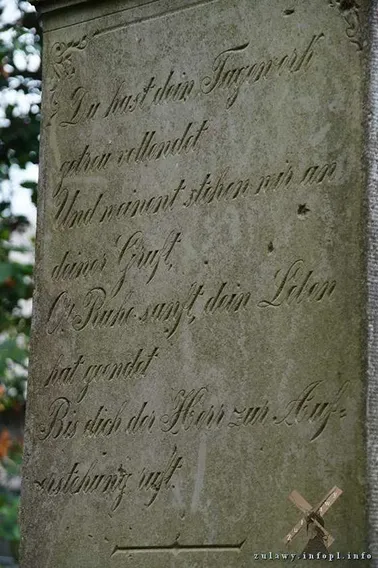 Du hast dein Tagewerk
getreu vollendet
Und weinent stehen wir an
deiner Gruft,
O! Ruhe sanft, dein Leben
hat geendet
Bis dich der Herr zur Auf=
erstehung ruft.
zulawy.infopl.info